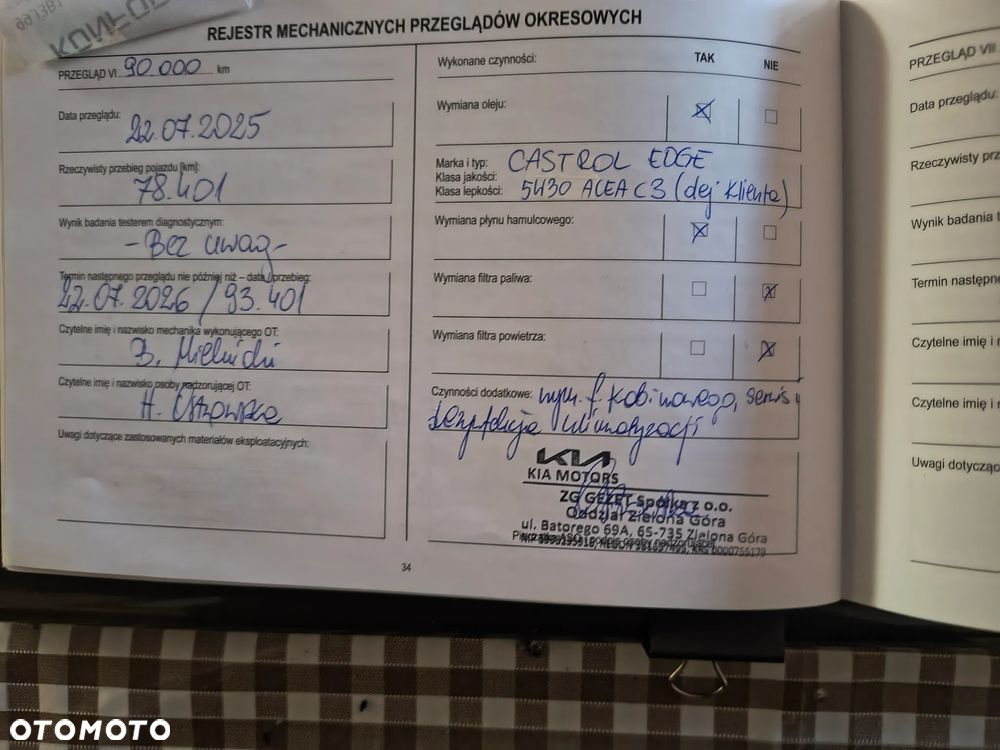 REJESTR MECHANICZNYCH PRZEGLĄDÓW OKRESOWYCH
PRZEGLĄD VI 90.000 km
Data przeglądu:
22.07.2025
Rzeczywisty przebieg pojazdu [km]:
78.401
Wynik badania testerem diagnostycznym:
- Bez uwag -
Termin następnego przeglądu nie później niż – data / przebieg:
22.07.2026 / 93.401
Czytelne imię i nazwisko mechanika wykonującego OT:
B. Mielnicki
Czytelne imię i nazwisko osoby nadzorującej OT:
Uwagi dotyczące zastosowanych materiałów eksploatacyjnych:
Wykonane czynności: TAK NIE
Wymiana oleju:
Marka i typ: CASTROL EDGE
Klasa jakości:
Klasa lepkości: 5W30 ACEA C3 (olej klienta)
Wymiana płynu hamulcowego:
Wymiana filtra paliwa:
Wymiana filtra powietrza:
Czynności dodatkowe: wym. f. kabinowego, serwis i
klimatyzacji
KIA
KIA MOTORS
ZG GEZET Spółka z o.o.
Oddział Zielona Góra
ul. Batorego 69A, 65-735 Zielona Góra
34
PRZEGLĄD VII
Data przeglądu:
Rzeczywisty prz
Wynik badania t
Termin następne
Czytelne imię i n
Czytelne imię i n
Uwagi dotycząc
OTOMOTO